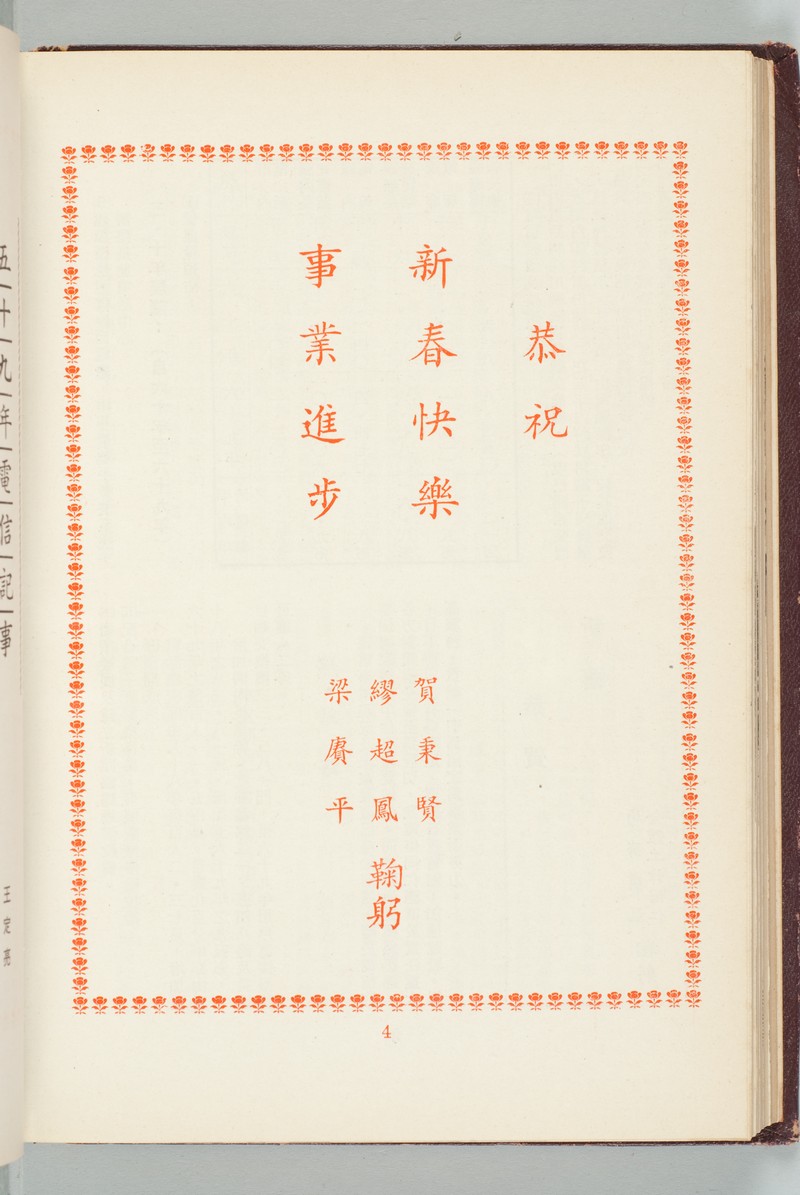 恭祝
新春快樂
事業進步
賀秉賢
繆超鳳
梁賡平
鞠躬
4
五十九年電信記事
王定亮